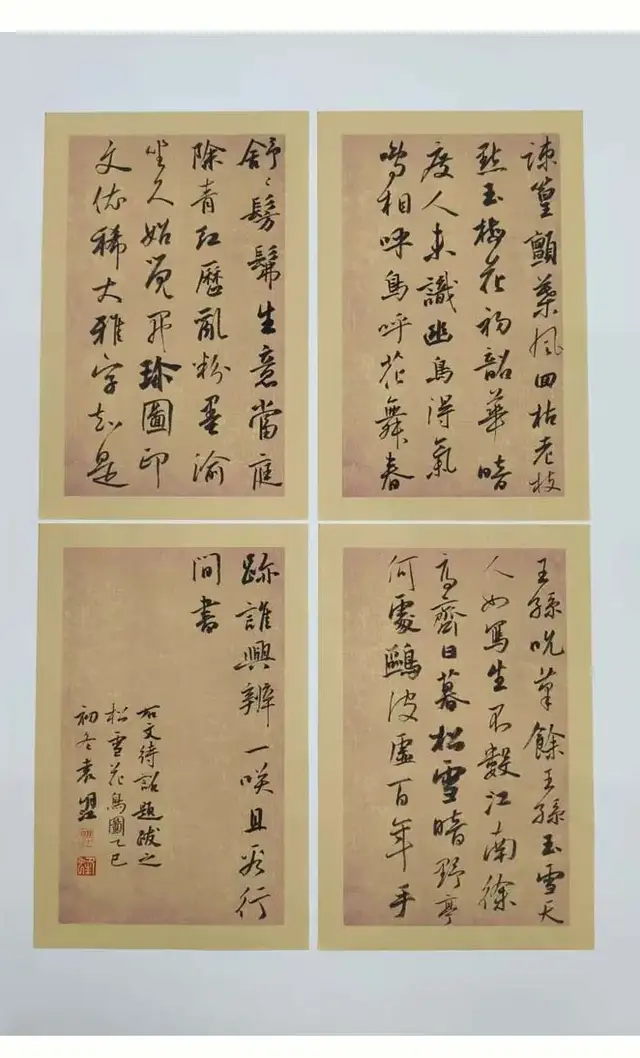 疎篁顫葉風回枯老枝
點玉梅花初韶華暗
度人未識幽鳥得氣
鳴相呼鳥呼花舞春
舒〻髣髴生意當庭
除青紅歷亂粉墨渝
坐久始覺珎圖印
文依稀大雅字知是
王孫吮筆餘王孫玉雪天
人如寫生不數江南徐
高齋日暮松雪暗野亭
何處鷗波虛百年手
跡誰與辨一咲且爲行
間書
右文待詔題跋之
松雪花鳥圖乙巳
初冬袁盟